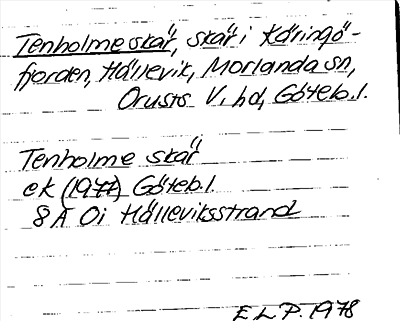 Tenholme skär, skär i Käringö-
fjorden, Hällevik, Morlanda sn,
Orusts V. hd, Göteb. l.
Tenholme skär
ek (1977) Göteb. l.
8 A 0i Hälleviksstrand
E L P. 1978